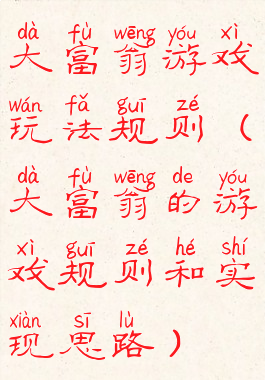 dà fù wēng yóu xì
大富翁游戏
wán fǎ guī zé
玩法规则（
dà fù wēng de yóu
大富翁的游
xì guī zé hé shí
戏规则和实
xiàn sī lù
现思路）